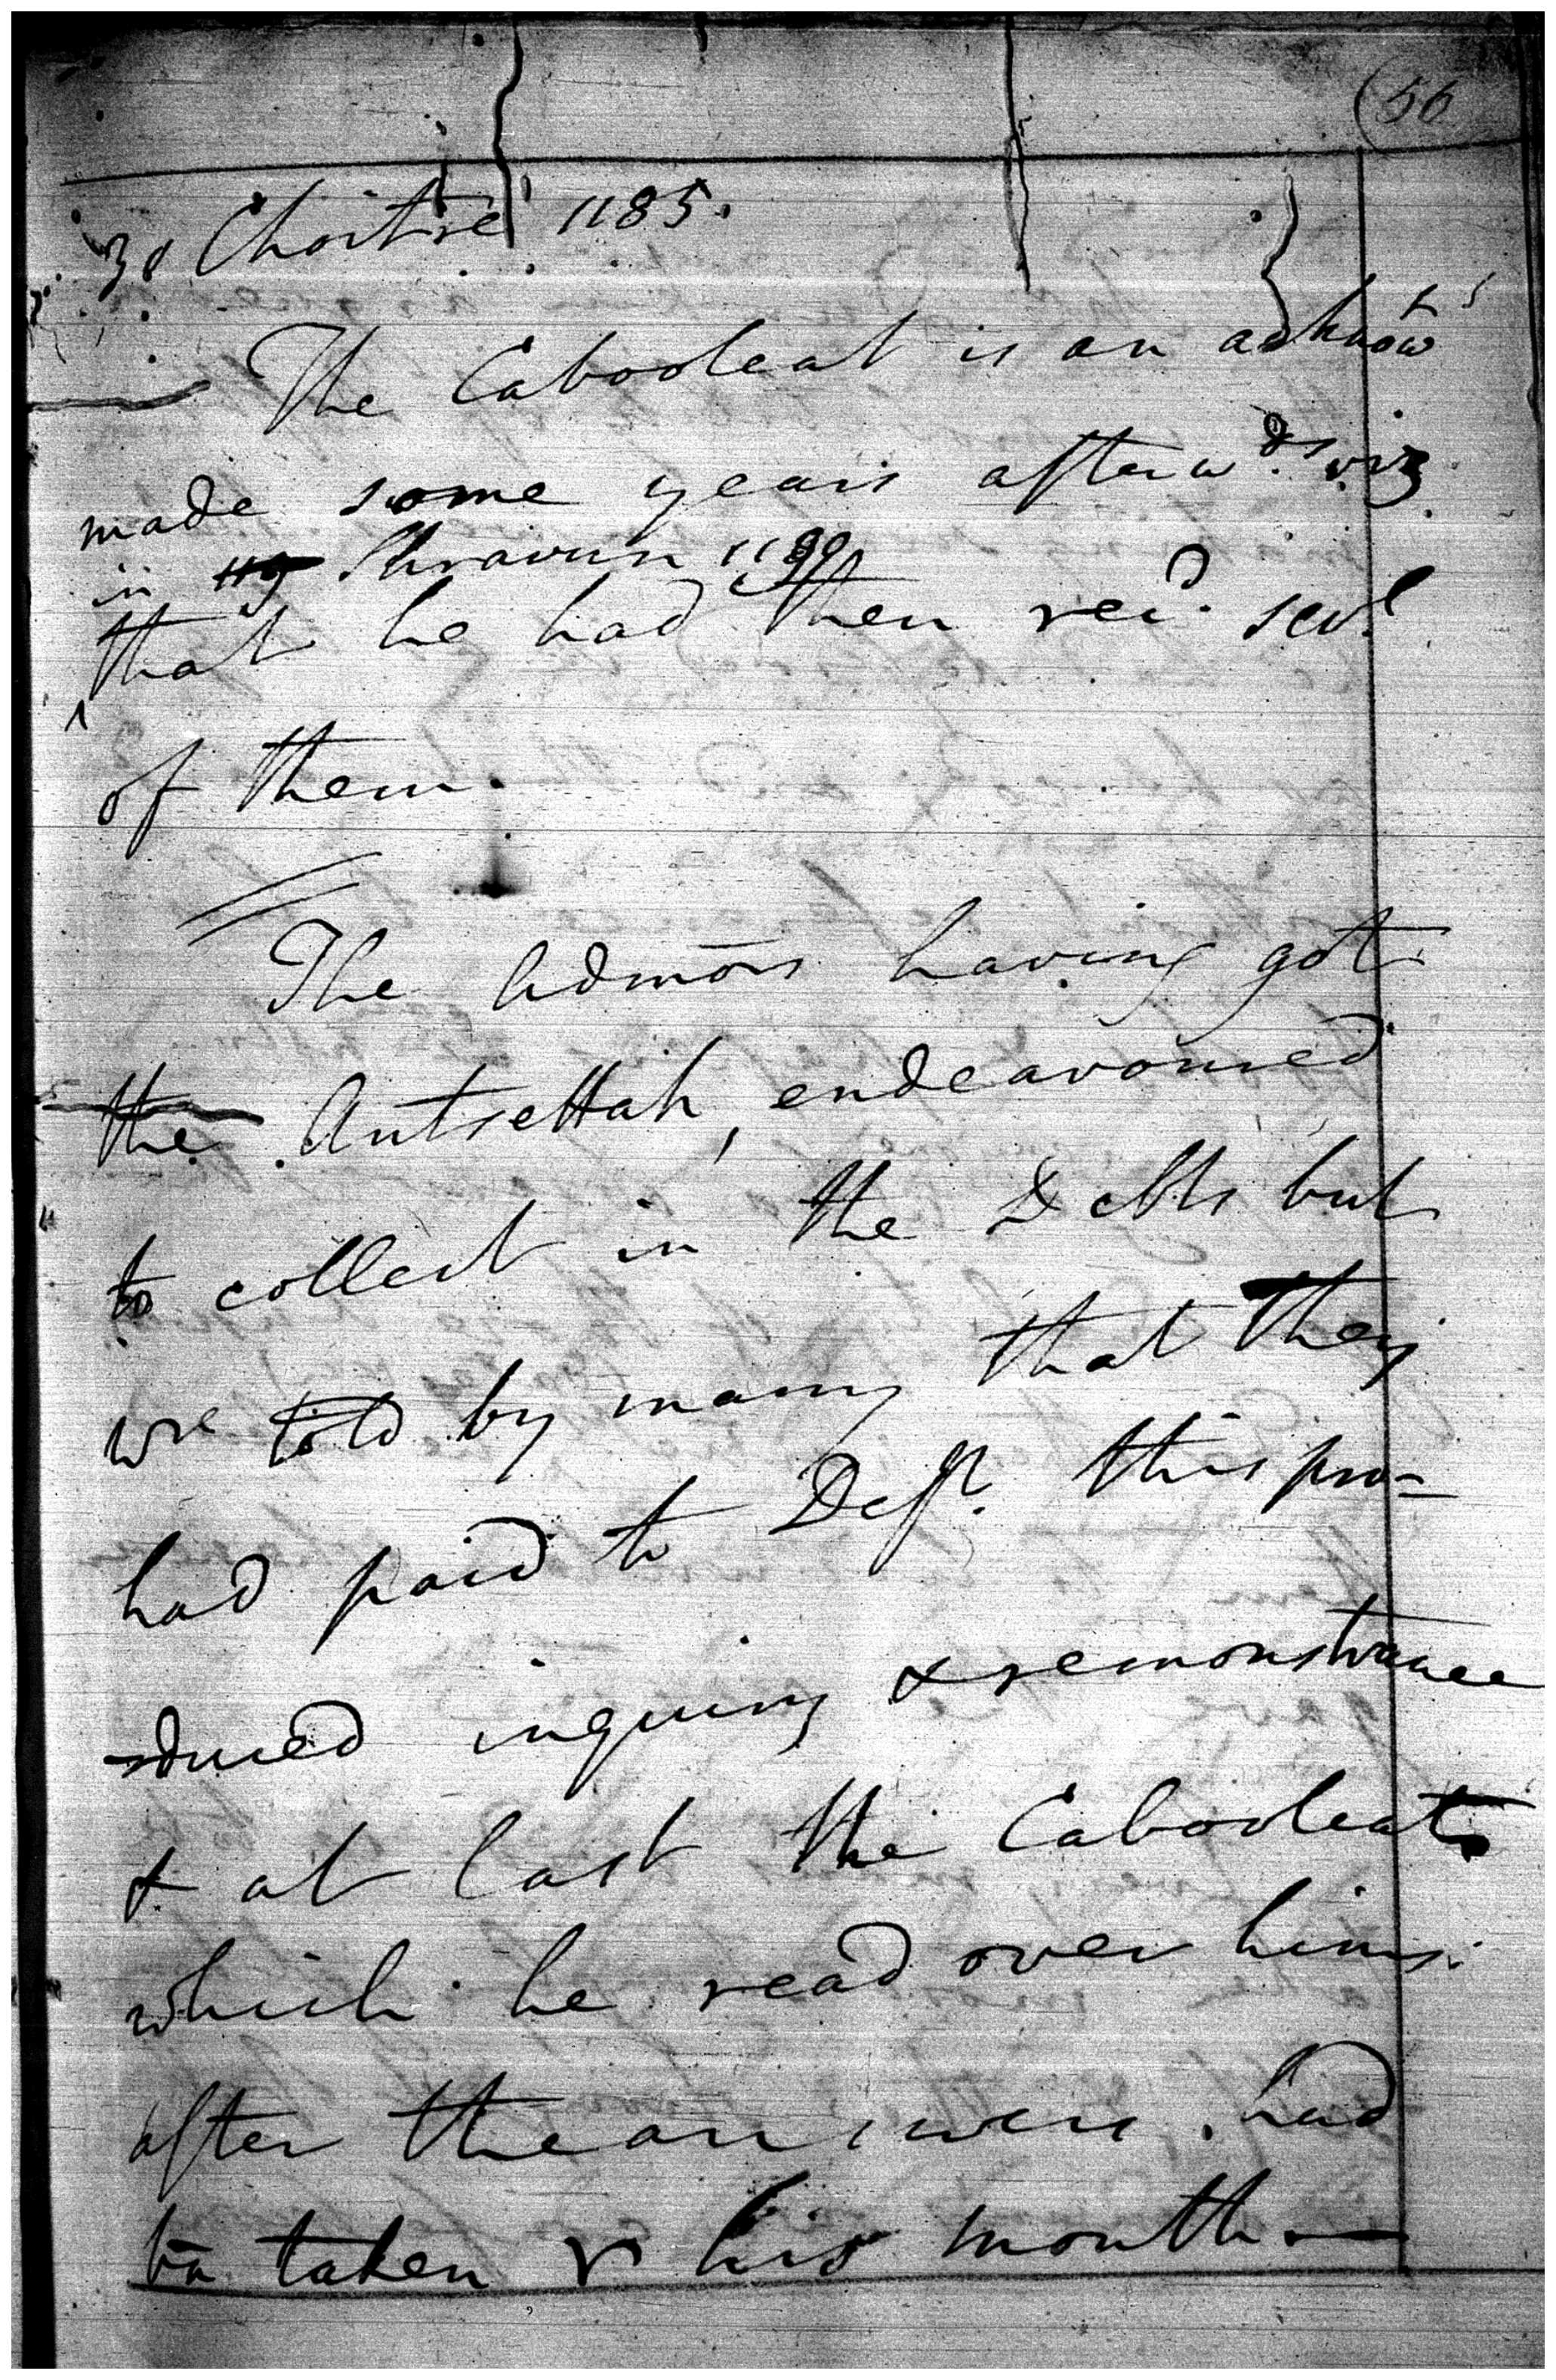 56
30 Choitre 1185.
The Cabooleat is an acknowt
made some years afterwds. viz
in Shravun 1189
that he had then recd. sevl
of them.
The Admõrs having got
the Antsettah, endeavoured
to collect in the Debts but
wre told by many that they
had paid to Deft. this pro=
=duced inquiry & remonstrance
& at last the Cabooleat
which he read over hims.
after the answers. had
bn taken his mouth —